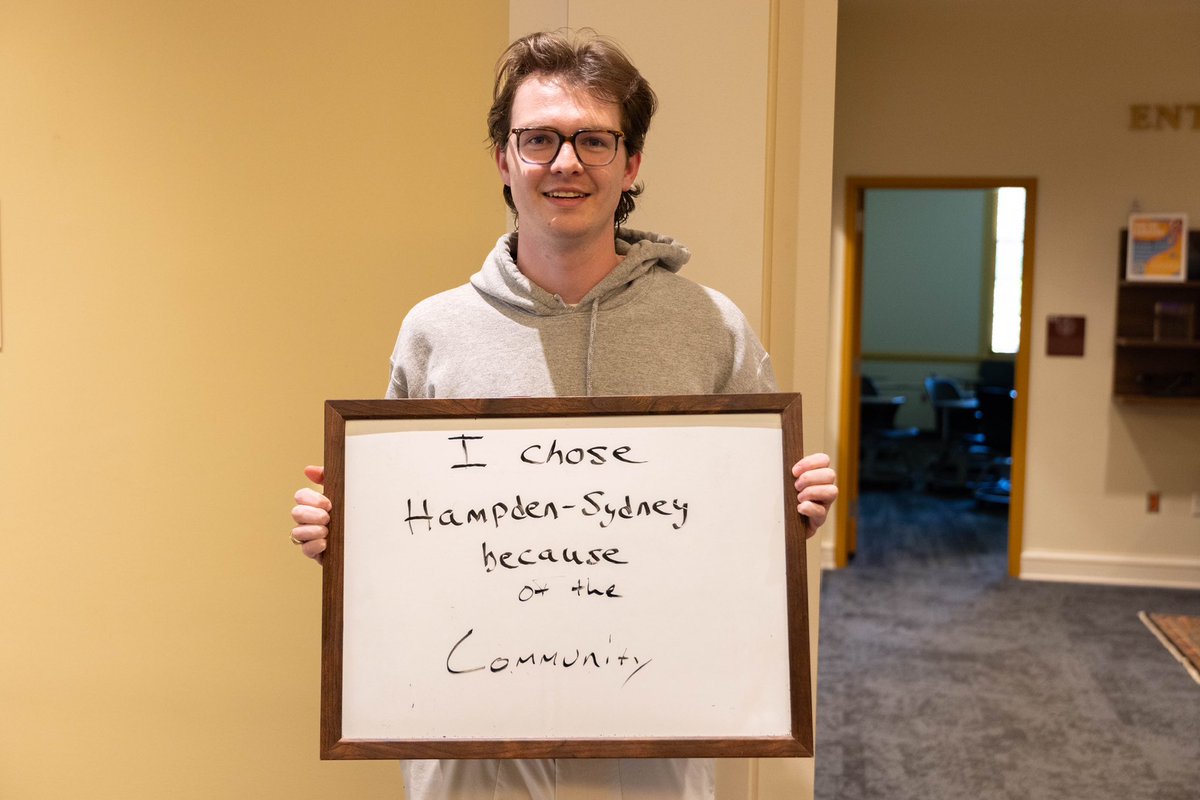 I chose
Hampden-Sydney
because
of the
Community
ENT